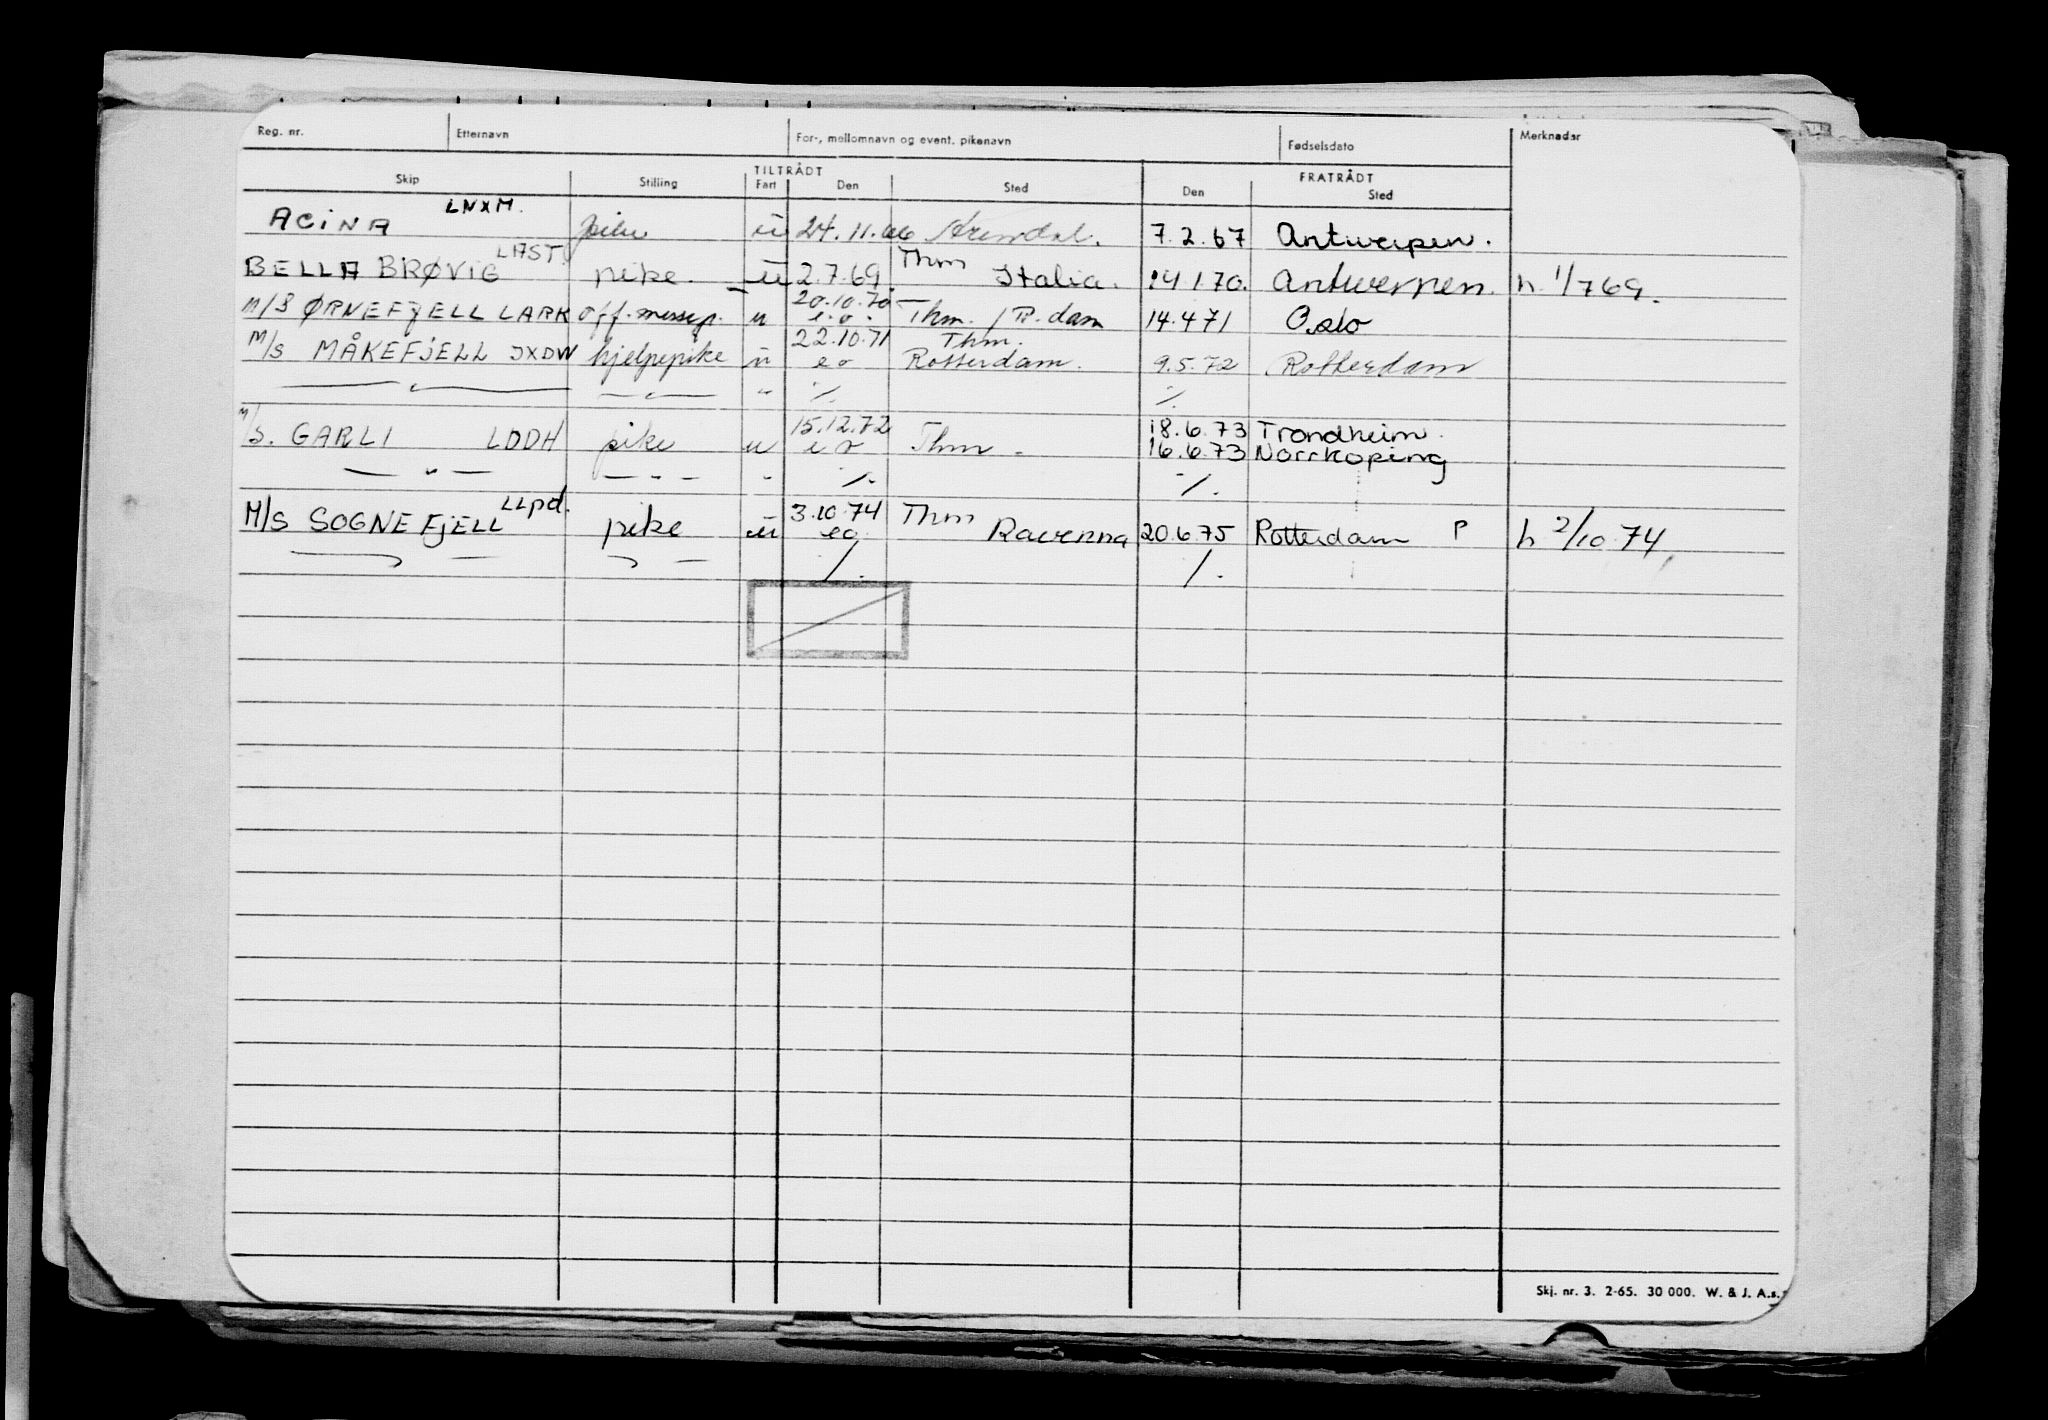 Reg. nr. Etternavn For-, mellomnavn og event. pikenavn Fødselsdato Merknader
TILTRÅDT FRATRÅDT
Skip Stilling Fart Den Sted Den Sted
ACINA LNXM. pike u 24.11.66 Arendal. 7.2.67 Antwerpen.
BELLA BRØVIG LAST. pike. u 2.7.69 Thm Italia. 14.1.70. Antwerpen. h. 1/769.
20.10.70
M/S ØRNEFJELL LARK off. messep. u e.o. Thm. / R.dam 14.4 71 Oslo
22.10.71 Thm.
M/S MÅKEFJELL JXDW hjelpepike u eo Rotterdam. 9.5.72 Rotterdam
— " — — " — " /. /.
15.12.72 18.6.73 Trondheim.
M/S. GARLI LDDH pike u eo Thm. 16.6.73 Norrkoping
— " — — " — " /. /.
M/S SOGNEFJELL LLpd. pike u 3.10.74 eo Thm Ravenna 20.6.75 Rotterdam P h 2/10.74
/. /.
Skj. nr. 3. 2-65. 30 000. W. & J. A.s.